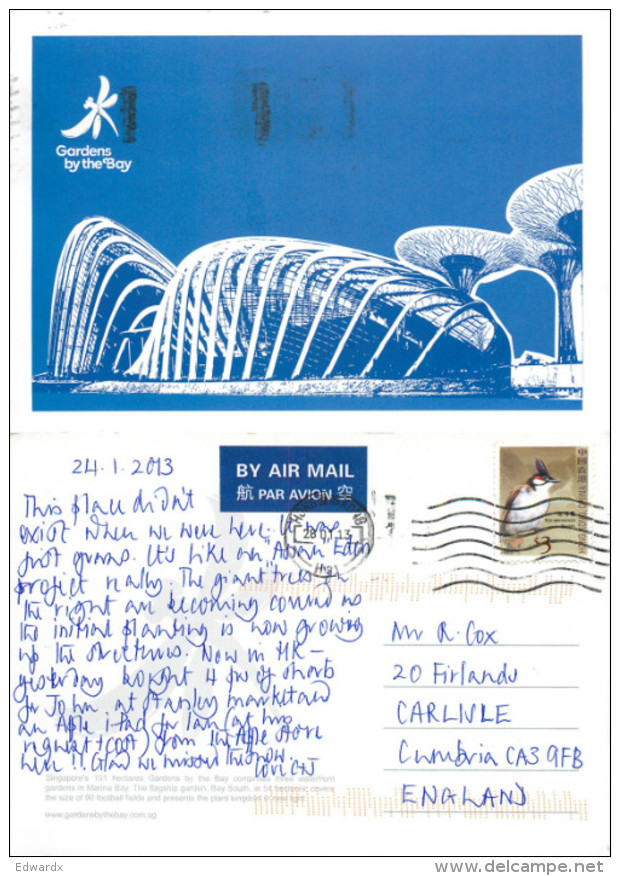 Gardens
by the Bay
24.1.2013
This place didn't
exist when we were here,
just grass. It's like an Asian Eden
project really. The giant "trees" on
the right are becoming covered as
the initial planting is now growing
up the structures. Now in HK –
yesterday bought 4 prs of shorts
for John at Stanley market and
an Apple iPad for Ian (at his
request (cost) from the Apple store
here!! Glad we missed the snow.
Love C & J
BY AIR MAIL
航 PAR AVION 空
28 01 13
中國香港
HONG KONG, CHINA
$3
Mr R. Cox
20 Firlands
CARLISLE
Cumbria CA3 9FB
ENGLAND
Singapore's 101 hectares Gardens by the Bay comprises three waterfront
gardens in Marina Bay. The flagship garden, Bay South, at 54 hectares, covers
the size of 90 football fields and presents the plant kingdom
www.gardensbythebay.com.sg
Edwardx
www.delcampe.net